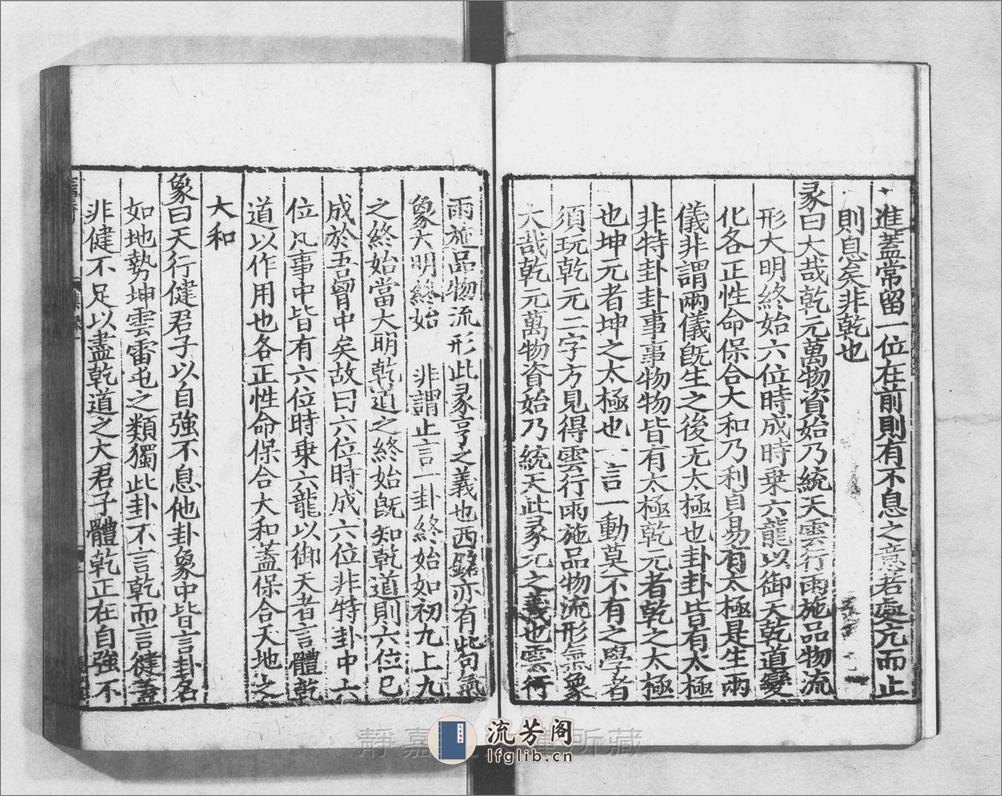 進蓋常留一位在前則有不息之意若處亢而止
則息矣非乾也
彖曰大哉乾元萬物資始乃統天雲行雨施品物流
形大明終始六位時成時乗六龍以御天乾道變
化各正性命保合大和乃利自易有太極是生兩
儀非謂兩儀既生之後无太極也卦卦皆有太極
非特卦卦事事物物皆有太極乾元者乾之太極
也坤元者坤之太極也一言一動莫不有之學者
須玩乾元二字方見得雲行雨施品物流形氣象
大哉乾元萬物資始乃統天此彖元之義也雲行
雨施品物流形此彖亨之義也西銘亦有此句氣
象大明終始 非謂止言一卦終始如初九上九
之終始當大明乾道之終始既知乾道則六位已
成於吾胷中矣故曰六位時成六位非特卦中六
位凡事中皆有六位時乗六龍以御天者言體乾
道以作用也各正性命保合大和蓋保合天地之
大和
象曰天行健君子以自強不息他卦象中皆言卦名
如地勢坤雲雷屯之類獨此卦不言乾而言健蓋
非健不足以盡乾道之大君子體乾正在自強不
静嘉 所藏
流芳阁
lfglib.cn